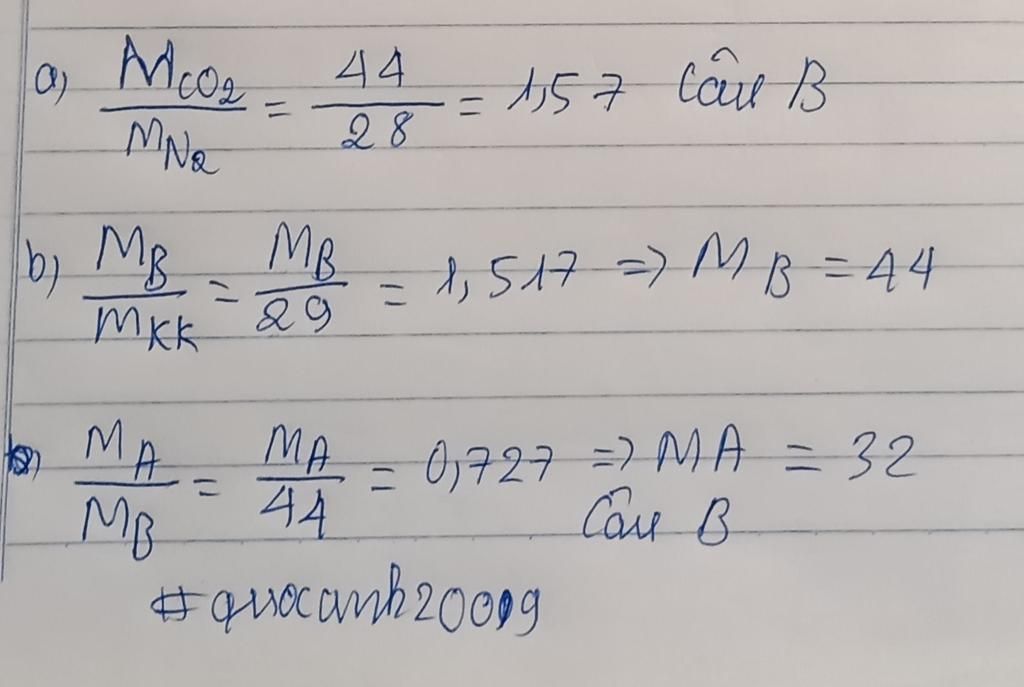 a) M_CO2 / M_N2 = 44 / 28 = 1,57 Câu B
b) M_B / M_KK = M_B / 29 = 1,517 => M_B = 44
M_A / M_B = M_A / 44 = 0,727 => MA = 32
Câu B
#quocanh2009